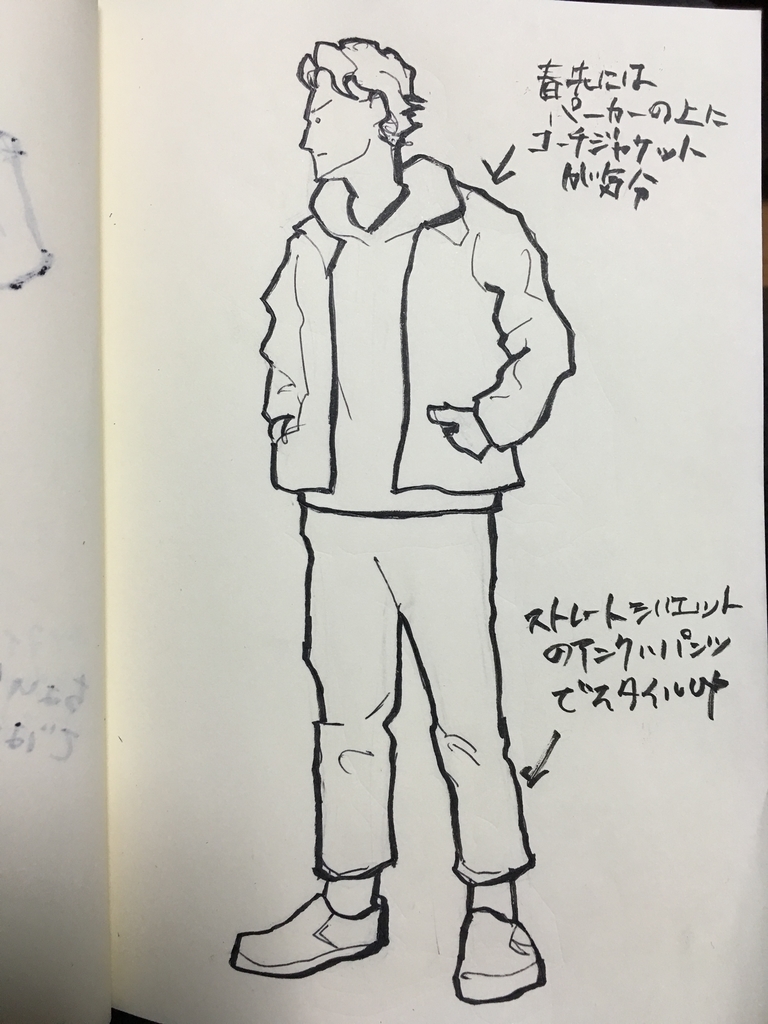 春先には
パーカーの上に
コーチジャケット
が気分
ストレートシルエット
のアンクルパンツ
でスタイルUP